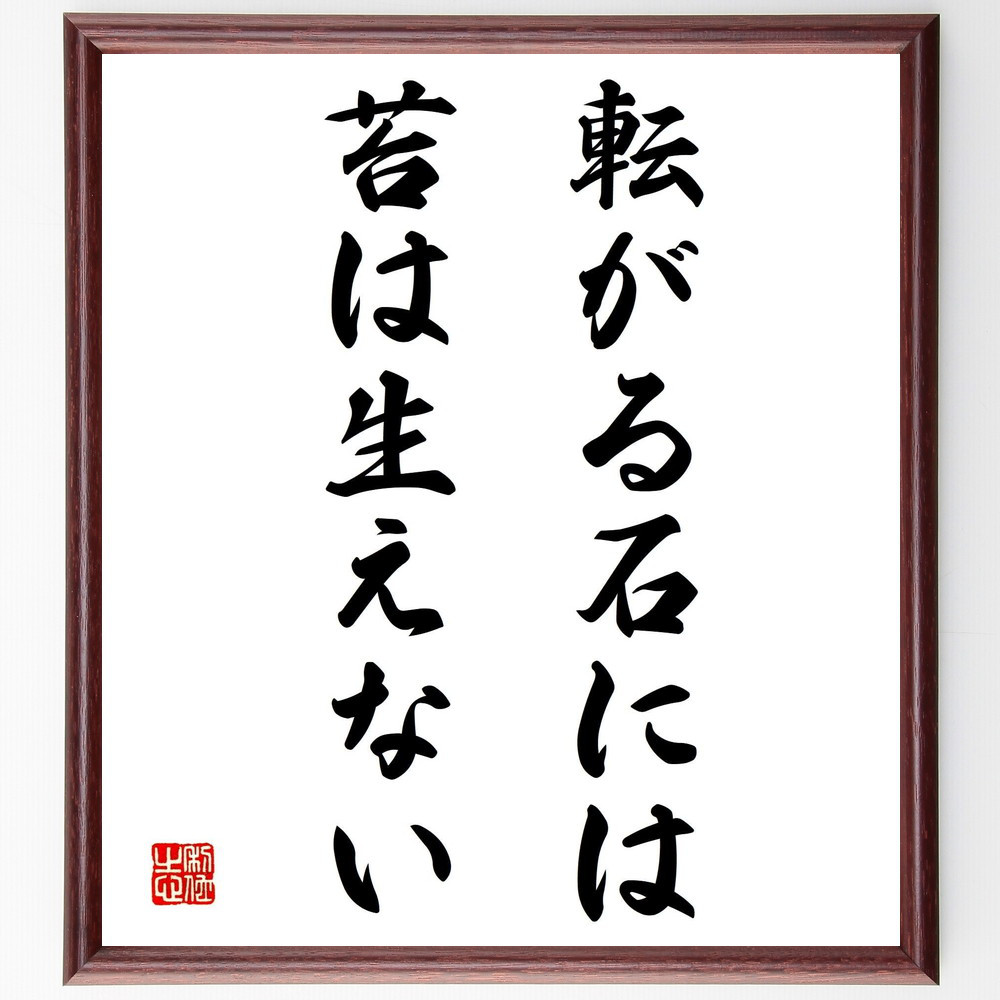 転がる石には
苔は生えない